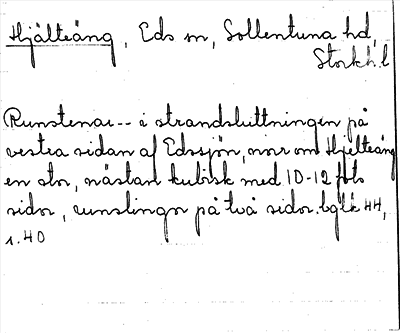 Hjälteäng, Eds sn, Sollentuna hd,
Stockh.l
Runstenar -- i strandsluttningen på
vestra sidan af Edssjön, norr om Hjelteäng
en stor, nästan kubisk med 10-12 fots
sidor, runslingor på två sidor.
s. 40